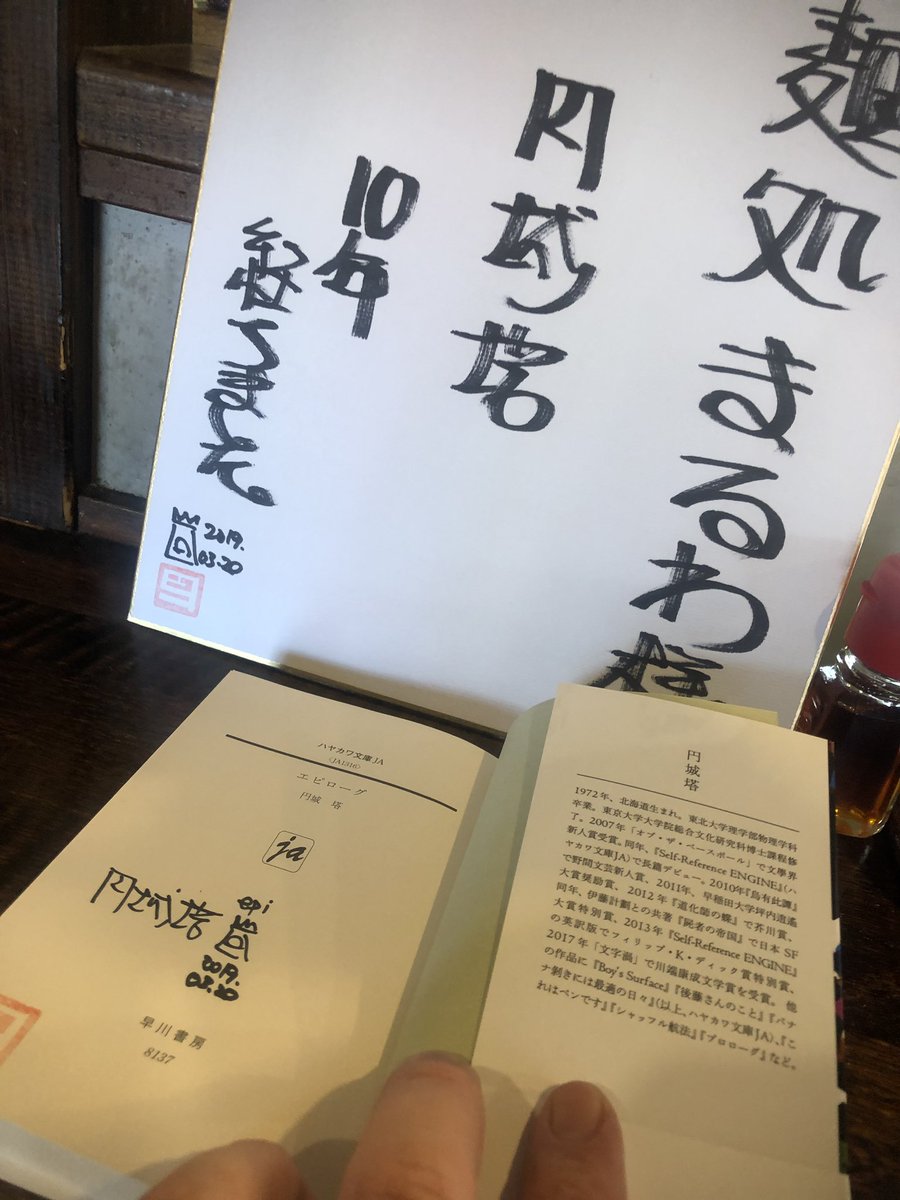 麺処 まるわ 様
円城塔
10年
2019.
03.20
ハヤカワ文庫JA
〈JA1316〉
エピローグ
円城 塔
ja
円城塔
epi
2019.
03.20
早川書房
8137
円城塔
1972年、北海道生まれ。東北大学理学部物理学科
卒業。東京大学大学院総合文化研究科博士課程修
了。2007年「オブ・ザ・ベースボール」で文學界
新人賞受賞。同年、『Self-Reference ENGINE』(ハ
ヤカワ文庫JA)で長篇デビュー。2010年『烏有此譚』
で野間文芸新人賞、2011年、早稲田大学坪内逍遙
大賞奨励賞、2012年『道化師の蝶』で芥川賞、
同年、伊藤計劃との共著『屍者の帝国』で日本SF
大賞特別賞、2013年『Self-Reference ENGINE』
の英訳版でフィリップ・K・ディック賞特別賞、
2017年「文字渦」で川端康成文学賞を受賞。他
の作品に『Boy's Surface』『後藤さんのこと』『バナ
ナ剝きには最適の日々』(以上、ハヤカワ文庫JA)、『こ
れはペンです』『シャッフル航法』『プロローグ』など。